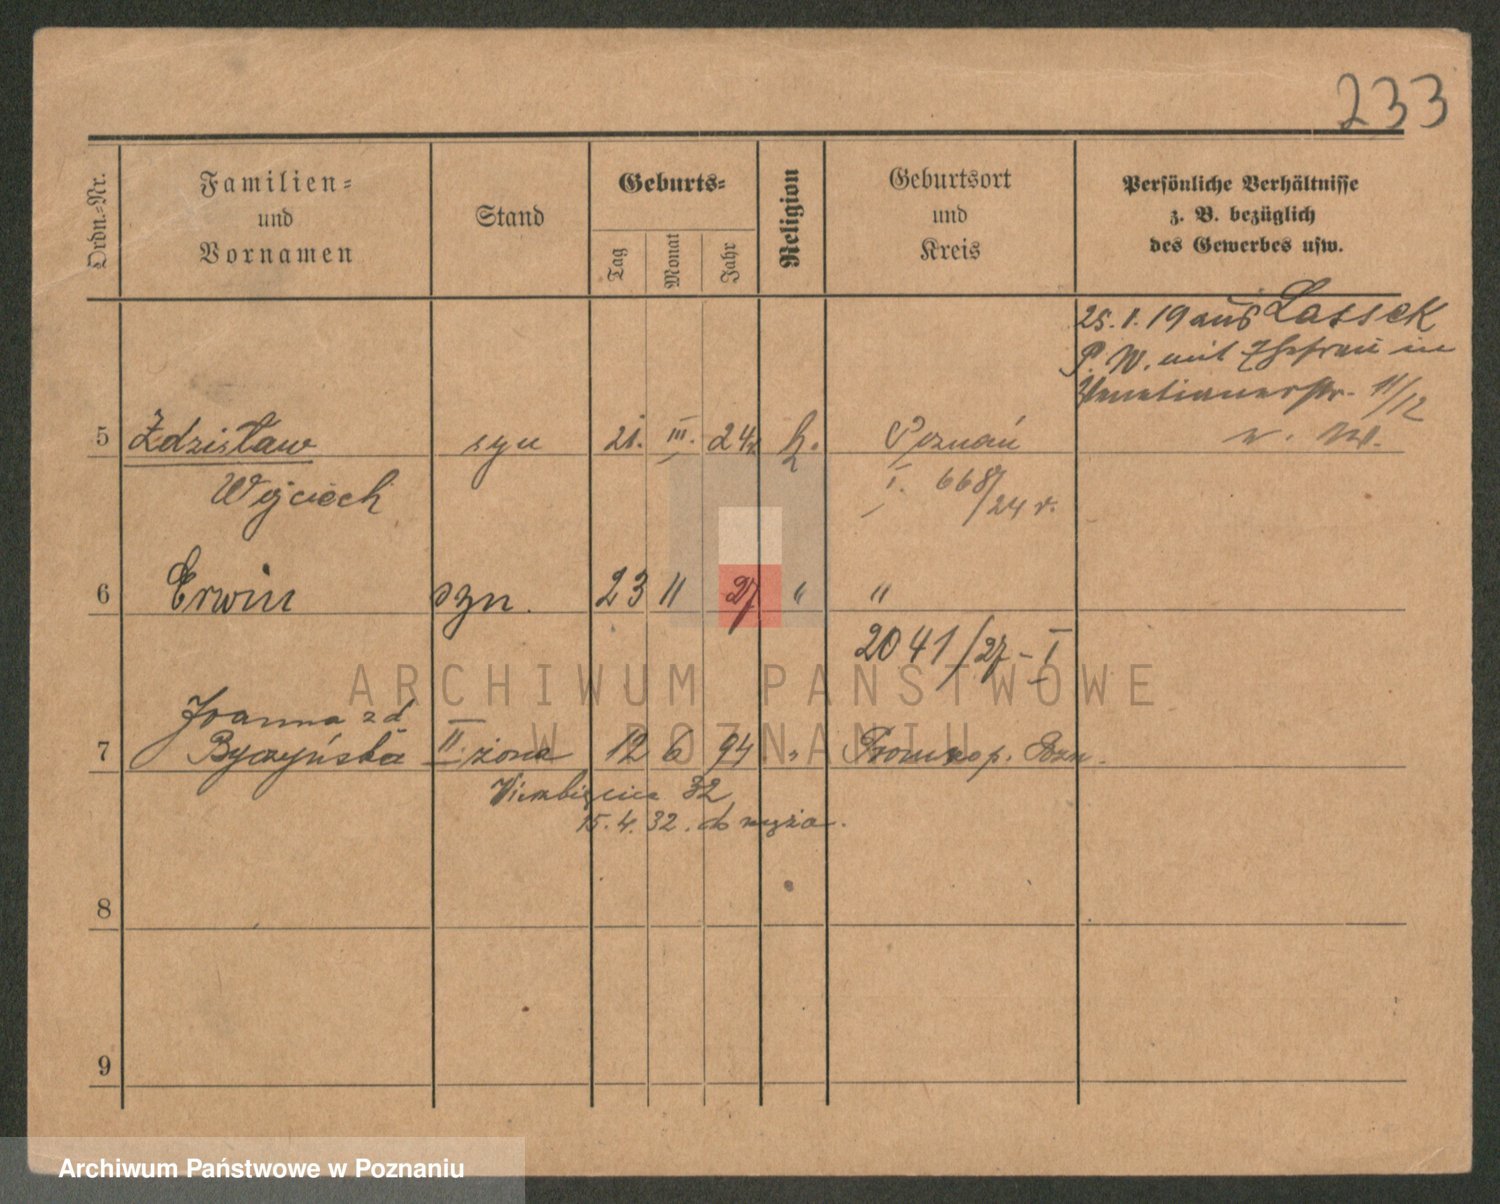 233
Ordn.-Nr.
Familien-
und
Vornamen
Stand
Geburts-
Tag
Monat
Jahr
Religion
Geburtsort
und
Kreis
Persönliche Verhältnisse
z. B. bezüglich
des Gewerbes usw.
25. 1. 19 aus Lassek
P. W. mit Ehefrau in
Venetianerstr. 11/12
5 Zdzisław syn 21. III. 24 k. Poznań
Wojciech I. 668/24 r.
6 Erwin syn. 23 11 27 " "
2041/27 - I
Joanna z d
7 Byczyńska II. żona 12 6 94 "
Wierzbięcice 32
15. 4. 32.
8
9
ARCHIWUM PAŃSTWOWE
W POZNANIU
Archiwum Państwowe w Poznaniu